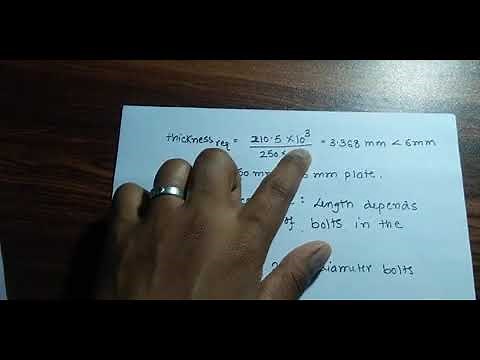 thickness req = 210.5 × 10³ / 250 = 3.368 mm < 6mm
mm plate.
: Length depends
of bolts in the
diameter bolts